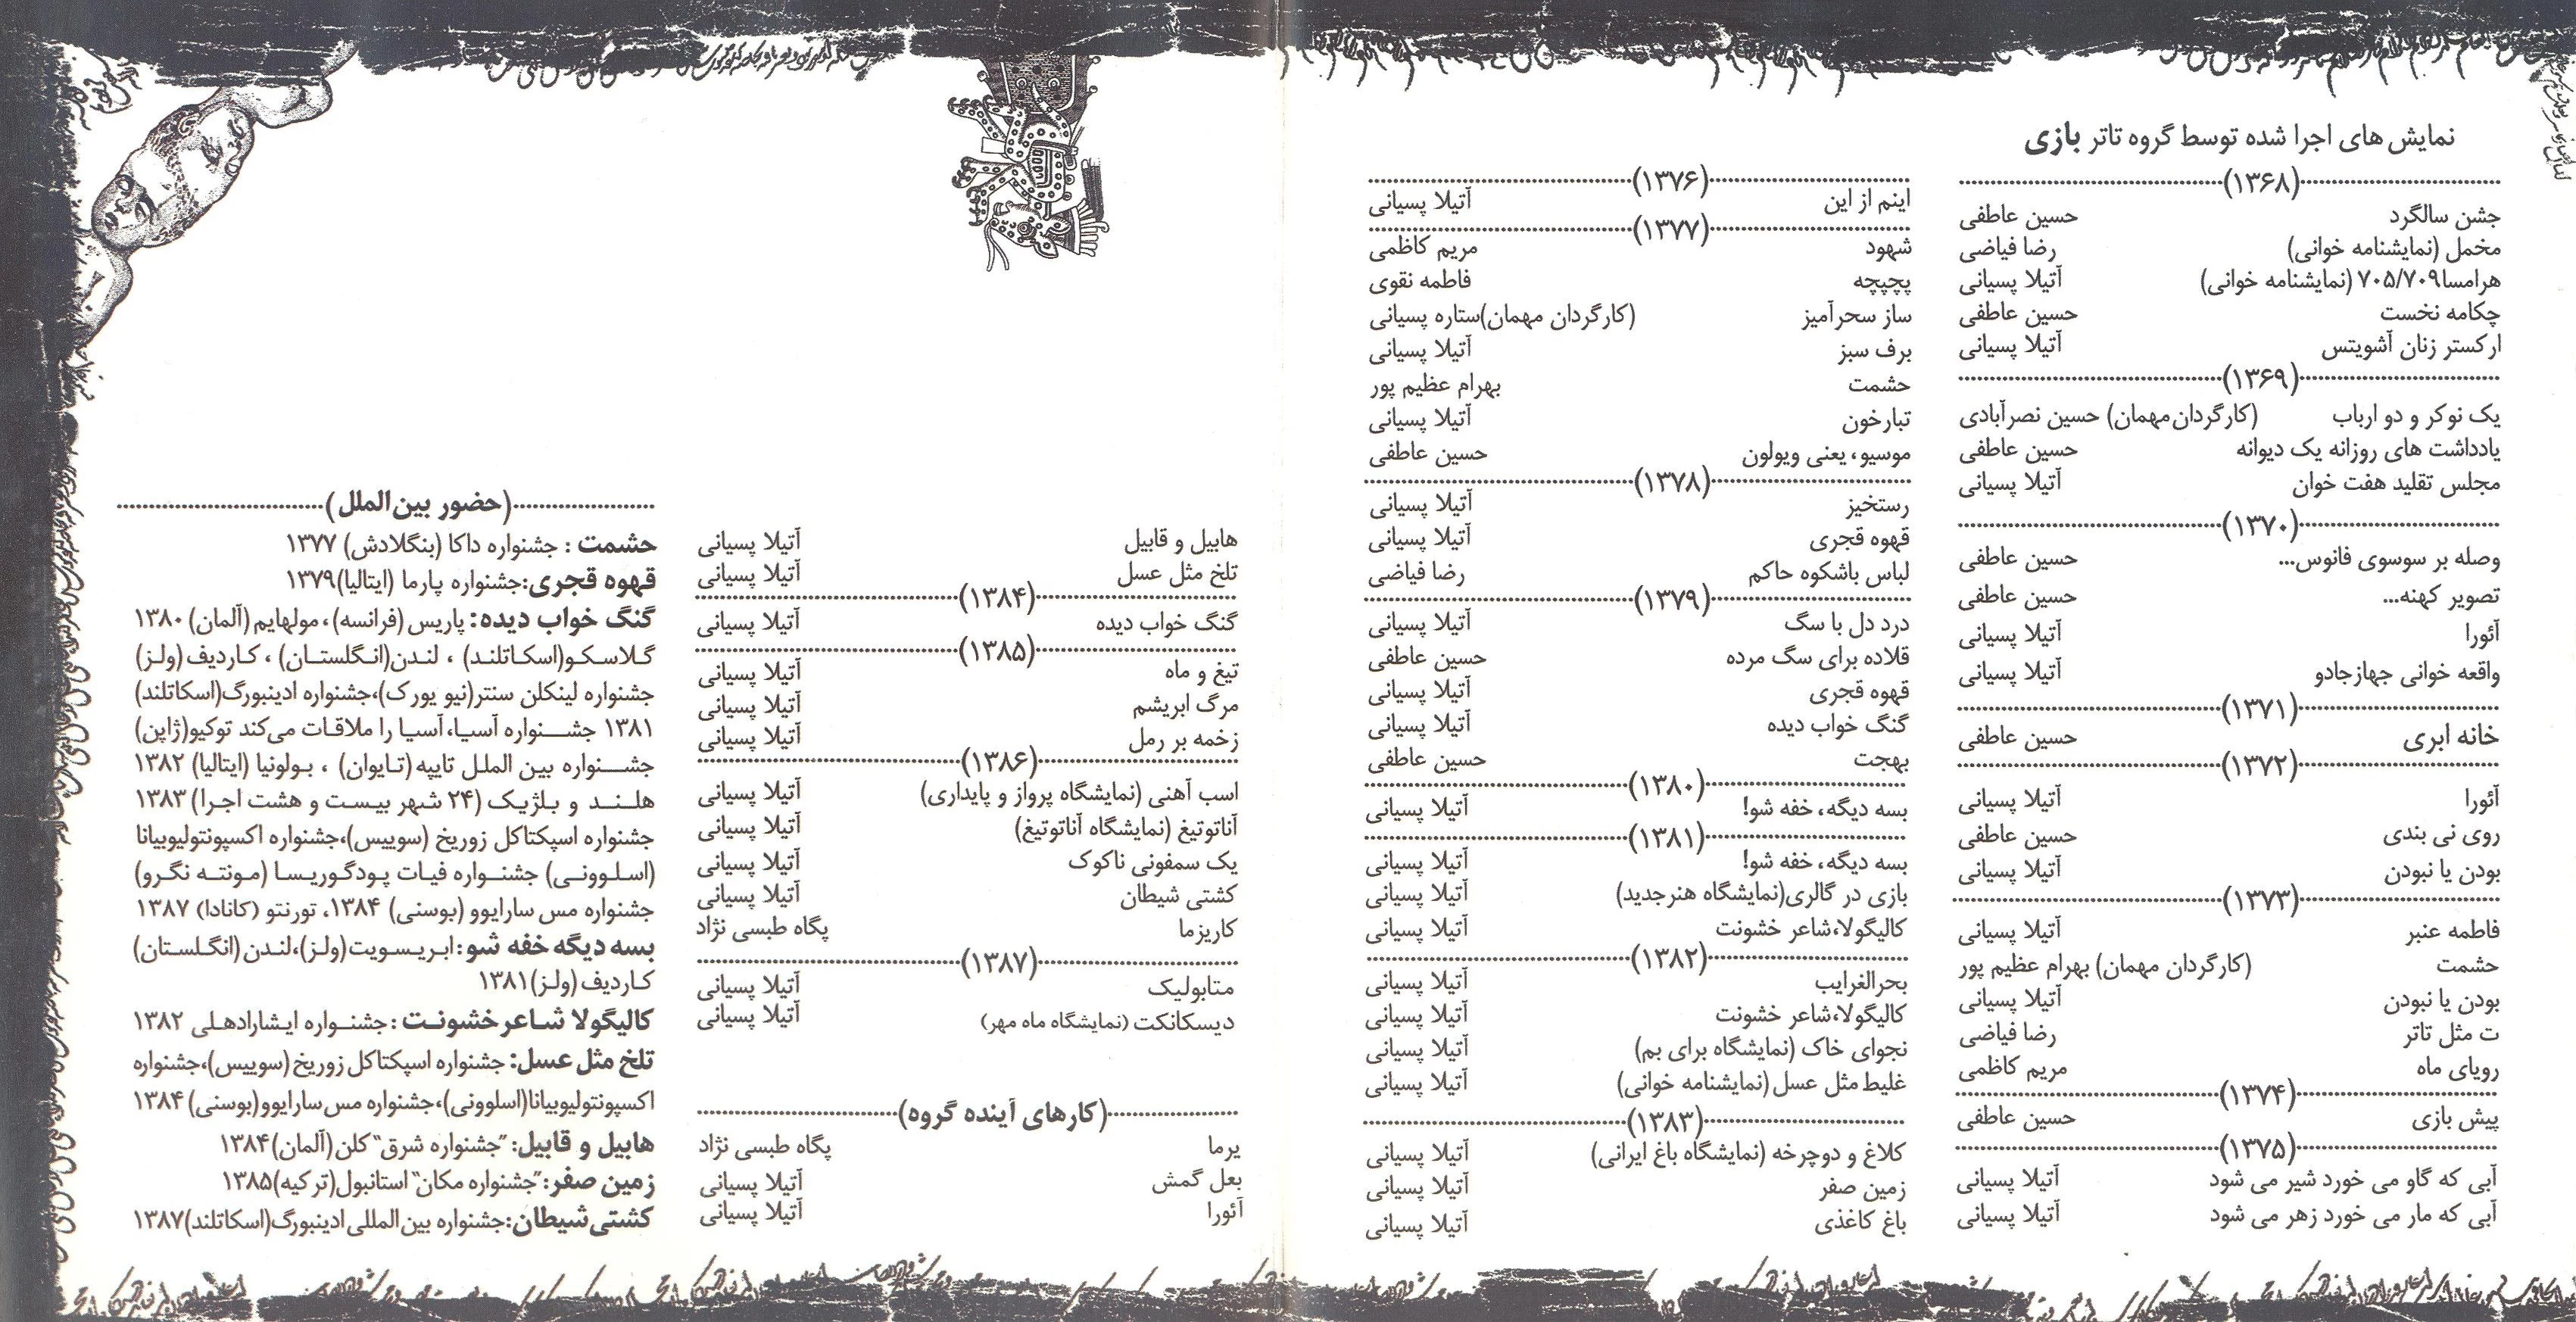 نمایش های اجرا شده توسط گروه تاتر بازی
(۱۳۶۸)
جشن سالگرد حسین عاطفی
مخمل (نمایشنامه خوانی) رضا فیاضی
هرامسا۷۰۵/۷۰۹ (نمایشنامه خوانی) آتیلا پسیانی
چکامه نخست حسین عاطفی
ارکستر زنان آشویتس آتیلا پسیانی
(۱۳۶۹)
یک نوکر و دو ارباب (کارگردان مهمان) حسین نصرآبادی
یادداشت های روزانه یک دیوانه حسین عاطفی
مجلس تقلید هفت خوان آتیلا پسیانی
(۱۳۷۰)
وصله بر سوسوی فانوس... حسین عاطفی
تصویر کهنه... حسین عاطفی
آئورا آتیلا پسیانی
واقعه خوانی جهازجادو آتیلا پسیانی
(۱۳۷۱)
خانه ابری حسین عاطفی
(۱۳۷۲)
آئورا آتیلا پسیانی
روی نی بندی حسین عاطفی
بودن یا نبودن آتیلا پسیانی
(۱۳۷۳)
فاطمه عنبر آتیلا پسیانی
حشمت (کارگردان مهمان) بهرام عظیم پور
بودن یا نبودن آتیلا پسیانی
ت مثل تاتر رضا فیاضی
رویای ماه مریم کاظمی
(۱۳۷۴)
پیش بازی حسین عاطفی
(۱۳۷۵)
آبی که گاو می خورد شیر می شود آتیلا پسیانی
آبی که مار می خورد زهر می شود آتیلا پسیانی
(۱۳۷۶)
اینم از این آتیلا پسیانی
(۱۳۷۷)
شهود مریم کاظمی
پچپچه فاطمه نقوی
ساز سحرآمیز (کارگردان مهمان)ستاره پسیانی
برف سبز آتیلا پسیانی
حشمت بهرام عظیم پور
تبارخون آتیلا پسیانی
موسیو، یعنی ویولون حسین عاطفی
(۱۳۷۸)
رستخیز آتیلا پسیانی
قهوه قجری آتیلا پسیانی
لباس باشکوه حاکم رضا فیاضی
(۱۳۷۹)
درد دل با سگ آتیلا پسیانی
قلاده برای سگ مرده حسین عاطفی
قهوه قجری آتیلا پسیانی
گنگ خواب دیده آتیلا پسیانی
بهجت حسین عاطفی
(۱۳۸۰)
بسه دیگه، خفه شو! آتیلا پسیانی
(۱۳۸۱)
بسه دیگه، خفه شو! آتیلا پسیانی
بازی در گالری(نمایشگاه هنرجدید) آتیلا پسیانی
کالیگولا،شاعر خشونت آتیلا پسیانی
(۱۳۸۲)
بحرالغرایب آتیلا پسیانی
کالیگولا،شاعر خشونت آتیلا پسیانی
نجوای خاک (نمایشگاه برای بم) آتیلا پسیانی
غلیط مثل عسل (نمایشنامه خوانی) آتیلا پسیانی
(۱۳۸۳)
کلاغ و دوچرخه (نمایشگاه باغ ایرانی) آتیلا پسیانی
زمین صفر آتیلا پسیانی
باغ کاغذی آتیلا پسیانی
هابیل و قابیل آتیلا پسیانی
تلخ مثل عسل آتیلا پسیانی
(۱۳۸۴)
گنگ خواب دیده آتیلا پسیانی
(۱۳۸۵)
تیغ و ماه آتیلا پسیانی
مرگ ابریشم آتیلا پسیانی
زخمه بر رمل آتیلا پسیانی
(۱۳۸۶)
اسب آهنی (نمایشگاه پرواز و پایداری) آتیلا پسیانی
آناتوتیغ (نمایشگاه آناتوتیغ) آتیلا پسیانی
یک سمفونی ناکوک آتیلا پسیانی
کشتی شیطان آتیلا پسیانی
کاریزما پگاه طبسی نژاد
(۱۳۸۷)
متابولیک آتیلا پسیانی
دیسکانکت (نمایشگاه ماه مهر) آتیلا پسیانی
(کارهای آینده گروه)
یرما پگاه طبسی نژاد
بعل گمش آتیلا پسیانی
آئورا آتیلا پسیانی
(حضور بین الملل)
حشمت : جشنواره داکا (بنگلادش) ۱۳۷۷
قهوه قجری:جشنواره پارما (ایتالیا)۱۳۷۹
گنگ خواب دیده: پاریس (فرانسه)، مولهایم (آلمان) ۱۳۸۰
گلاسکو(اسکاتلند) ، لندن(انگلستان) ، کاردیف (ولز)
جشنواره لینکلن سنتر(نیو یورک)،جشنواره ادینبورگ(اسکاتلند)
۱۳۸۱ جشنواره آسیا،آسیا را ملاقات می‌کند توکیو(ژاپن)
جشنواره بین الملل تایپه (تایوان) ، بولونیا (ایتالیا) ۱۳۸۲
هلند و بلژیک (۲۴ شهر بیست و هشت اجرا) ۱۳۸۳
جشنواره اسپکتاکل زوریخ (سوییس)،جشنواره اکسپونتولیوبیانا
(اسلوونی) جشنواره فیات پودگوریسا (مونته نگرو)
جشنواره مس سارایوو (بوسنی) ۱۳۸۴، تورنتو (کانادا) ۱۳۸۷
بسه دیگه خفه شو: ابریسویت(ولز)،لندن (انگلستان)
کاردیف (ولز)۱۳۸۱
کالیگولا شاعر خشونت :جشنواره ایشارادهلی ۱۳۸۲
تلخ مثل عسل: جشنواره اسپکتاکل زوریخ (سوییس)،جشنواره
اکسپونتولیوبیانا(اسلوونی)،جشنواره مس سارایوو(بوسنی) ۱۳۸۴
هابیل و قابیل: "جشنواره شرق" کلن (آلمان)۱۳۸۴
زمین صفر: "جشنواره مکان" استانبول(ترکیه)۱۳۸۵
کشتی شیطان:جشنواره بین المللی ادینبورگ(اسکاتلند)۱۳۸۷